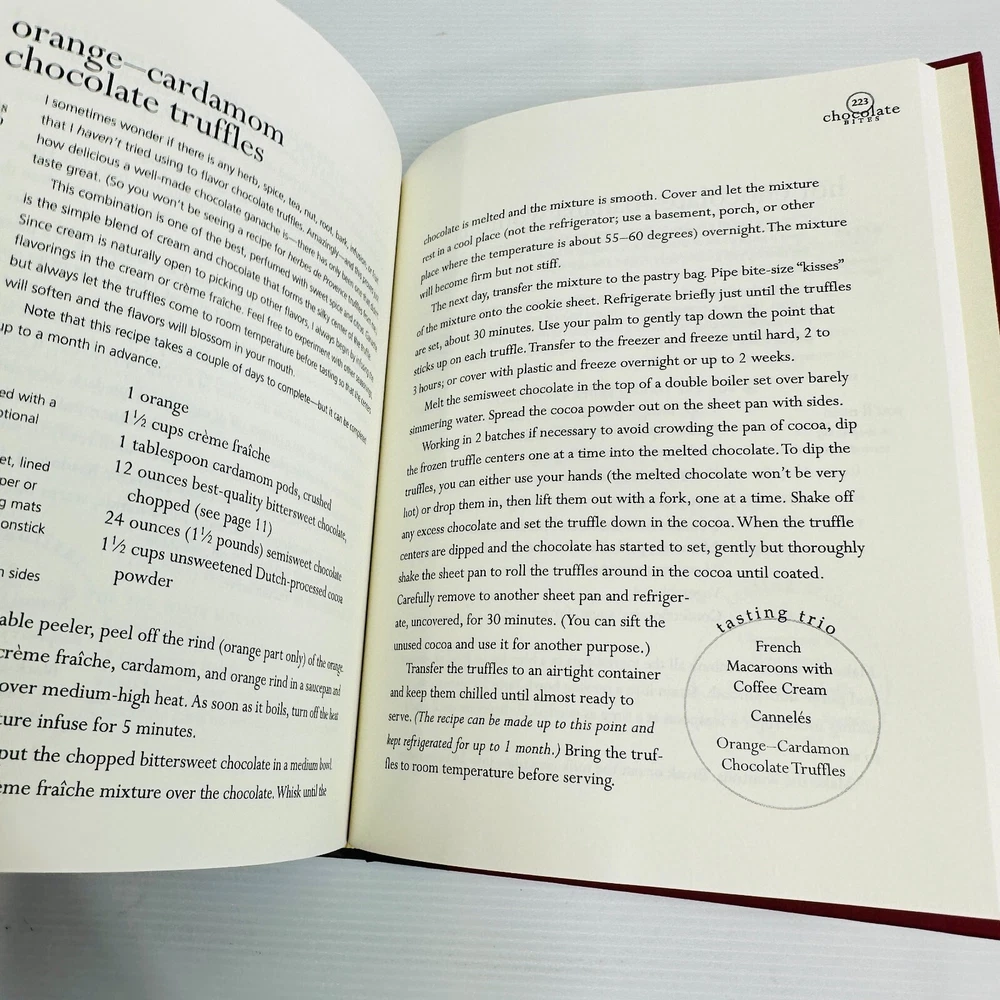 orange—cardamom
chocolate truffles
I sometimes wonder if there is any herb, spice, tea, nut, root, bark, infusion, or fruit
that I haven't tried using to flavor chocolate truffles. Amazingly—and this proves just
how delicious a well-made chocolate ganache is—there has only been one that didn't
taste great. (So you won't be seeing a recipe for herbes de Provence truffles
This combination is one of the best, perfumed with sweet spice and citrus.
is the simple blend of cream and chocolate that forms the silky center of the truffle.
Since cream is naturally open to picking up other flavors, I always begin by infusing the
flavorings in the cream or crème fraîche. Feel free to experiment with other seasonings,
but always let the truffles come to room temperature before tasting so that the centers
will soften and the flavors will blossom in your mouth.
Note that this recipe takes a couple of days to complete—but it can be completed
up to a month in advance.
ed with a
otional
et, lined
per or
g mats
onstick
n sides
1 orange
1½ cups crème fraîche
1 tablespoon cardamom pods, crushed
12 ounces best-quality bittersweet chocolate,
chopped (see page 11)
24 ounces (1½ pounds) semisweet chocolate
1½ cups unsweetened Dutch-processed cocoa
powder
able peeler, peel off the rind (orange part only) of the orange.
crème fraîche, cardamom, and orange rind in a saucepan and
over medium-high heat. As soon as it boils, turn off the heat
ture infuse for 5 minutes.
put the chopped bittersweet chocolate in a medium bowl.
eme fraîche mixture over the chocolate. Whisk until the
223
chocolate
BITES
chocolate is melted and the mixture is smooth. Cover and let the mixture
rest in a cool place (not the refrigerator; use a basement, porch, or other
place where the temperature is about 55–60 degrees) overnight. The mixture
will become firm but not stiff.
The next day, transfer the mixture to the pastry bag. Pipe bite-size “kisses”
of the mixture onto the cookie sheet. Refrigerate briefly just until the truffles
are set, about 30 minutes. Use your palm to gently tap down the point that
sticks up on each truffle. Transfer to the freezer and freeze until hard, 2 to
3 hours; or cover with plastic and freeze overnight or up to 2 weeks.
Melt the semisweet chocolate in the top of a double boiler set over barely
simmering water. Spread the cocoa powder out on the sheet pan with sides.
Working in 2 batches if necessary to avoid crowding the pan of cocoa, dip
the frozen truffle centers one at a time into the melted chocolate. To dip the
truffles, you can either use your hands (the melted chocolate won't be very
hot) or drop them in, then lift them out with a fork, one at a time. Shake off
any excess chocolate and set the truffle down in the cocoa. When the truffle
centers are dipped and the chocolate has started to set, gently but thoroughly
shake the sheet pan to roll the truffles around in the cocoa until coated.
Carefully remove to another sheet pan and refriger-
ate, uncovered, for 30 minutes. (You can sift the
unused cocoa and use it for another purpose.)
Transfer the truffles to an airtight container
and keep them chilled until almost ready to
serve. (The recipe can be made up to this point and
kept refrigerated for up to 1 month.) Bring the truf-
fles to room temperature before serving.
tasting trio
French
Macaroons with
Coffee Cream
Cannelés
Orange–Cardamon
Chocolate Truffles